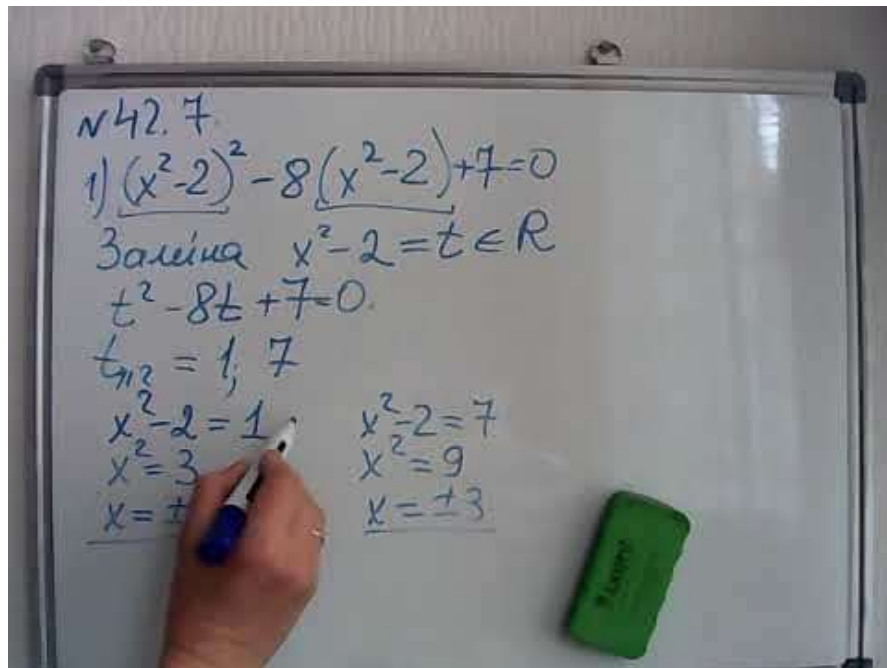 №42.7.
1) (x²-2)² - 8(x²-2) +7=0
Заміна x²-2 = t ∈ R
t² - 8t + 7=0.
t₁,₂ = 1; 7
x²-2 = 1 x²-2 = 7
x² = 3 x² = 9
x = ± x = ±3